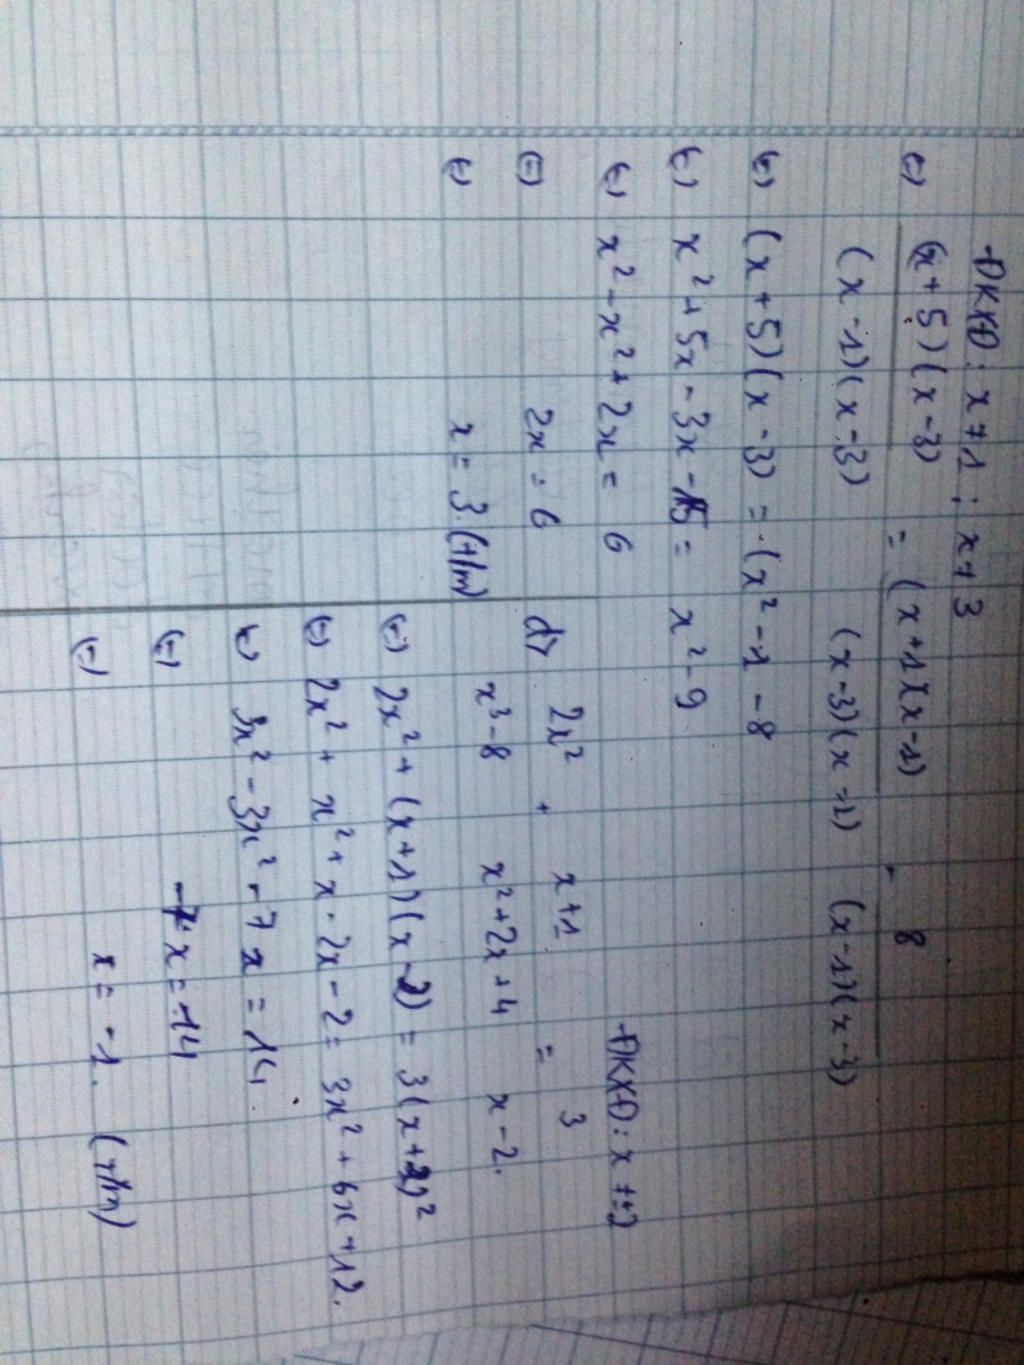 ĐKXĐ: x ≠ 1 ; x ≠ 3
(=) (x+5)(x-3) / (x-1)(x-3) = (x+1)(x-1) / (x-3)(x-1) - 8 / (x-1)(x-3)
(=) (x+5)(x-3) = (x² - 1 - 8
(=) x² + 5x - 3x - 15 = x² - 9
(=) x² - x² + 2x = 6
(=) 2x = 6
(=) x = 3. (t/m)
ĐKXĐ: x ≠ ±2
d> 2x² / x³-8 + x+1 / x²+2x+4 = 3 / x-2.
(=) 2x² + (x+1)(x-2) = 3(x+2)²
(=) 2x² + x² + x - 2x - 2 = 3x² + 6x + 12.
(=) 3x² - 3x² - 7x = 14
(=) x = -14
(=) x = -1. (t/m)